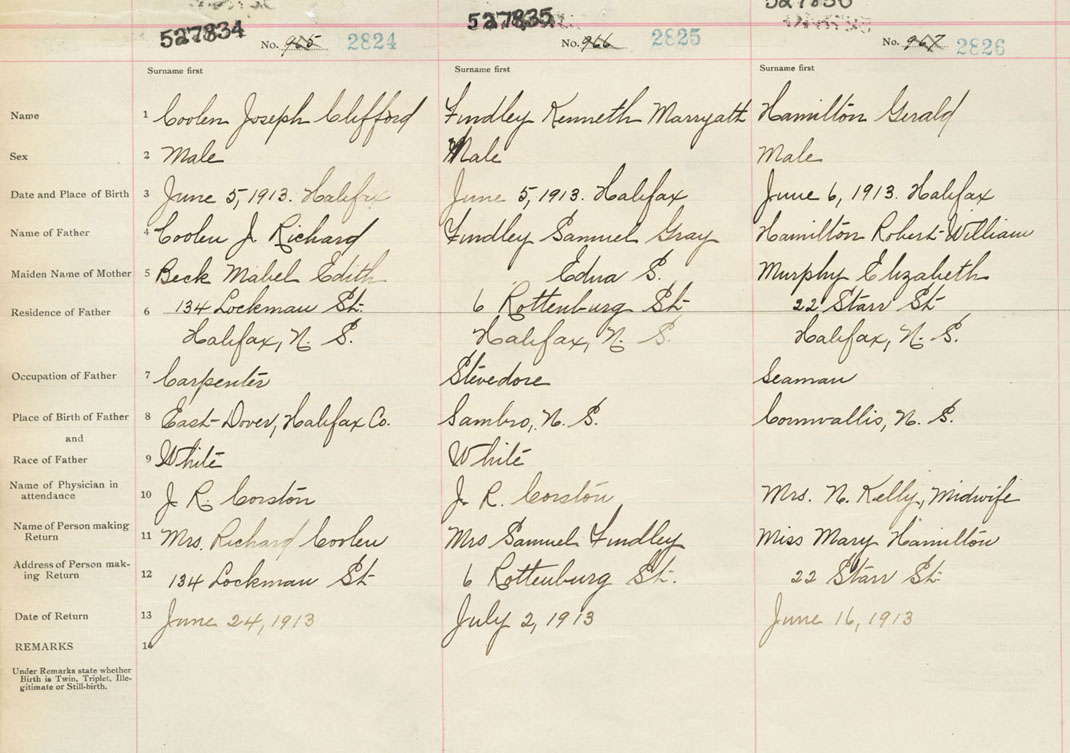 527834
527835
No. 965 2824
No. 966 2825
No. 967 2826
Surname first
Surname first
Surname first
Name 1 Coolen Joseph Clifford Findley Kenneth Marryath Hamilton Gerald
Sex 2 Male Male Male
Date and Place of Birth 3 June 5, 1913. Halifax June 5, 1913. Halifax June 6, 1913. Halifax
Name of Father 4 Coolen J. Richard Findley Samuel Gray Hamilton Robert William
Maiden Name of Mother 5 Beck Mabel Edith Edna S. Murphy Elizabeth
Residence of Father 6 134 Lockman St. 6 Rottenburg St. 22 Starr St.
Halifax, N. S. Halifax, N. S. Halifax, N. S.
Occupation of Father 7 Carpenter Stevedore Seaman
Place of Birth of Father 8 East Dover, Halifax Co. Sambro, N. S. Cornwallis, N. S.
and
Race of Father 9 White White
Name of Physician in
attendance 10 J. R. Corston J. R. Corston Mrs. N. Kelly, Midwife
Name of Person making
Return 11 Mrs. Richard Coolen Mrs Samuel Findley Miss Mary Hamilton
Address of Person mak-
ing Return 12 134 Lockman St. 6 Rottenburg St. 22 Starr St.
Date of Return 13 June 24, 1913 July 2, 1913 June 16, 1913
REMARKS 14
Under Remarks state whether
Birth is Twin, Triplet, Ille-
gitimate or Still-birth.